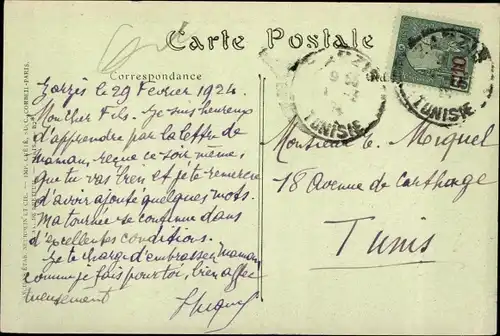 Carte Postale
Correspondance
Zarzis le 29 Février 1924.
Mon cher Fils. Je suis heureux
d'apprendre par la lettre de
maman, reçue ce soir même,
que tu vas bien et je te remercie
d'avoir ajouté quelques mots.
Ma tournée se continue dans
d'excellentes conditions.
Je te charge d'embrasser maman
comme je fais pour toi, bien affec
tueusement
Miquel
ZARZIS
TUNISIE
ZARZIS
TUNISIE
10
Monsieur C. Miquel
18 Avenue de Carthage
Tunis